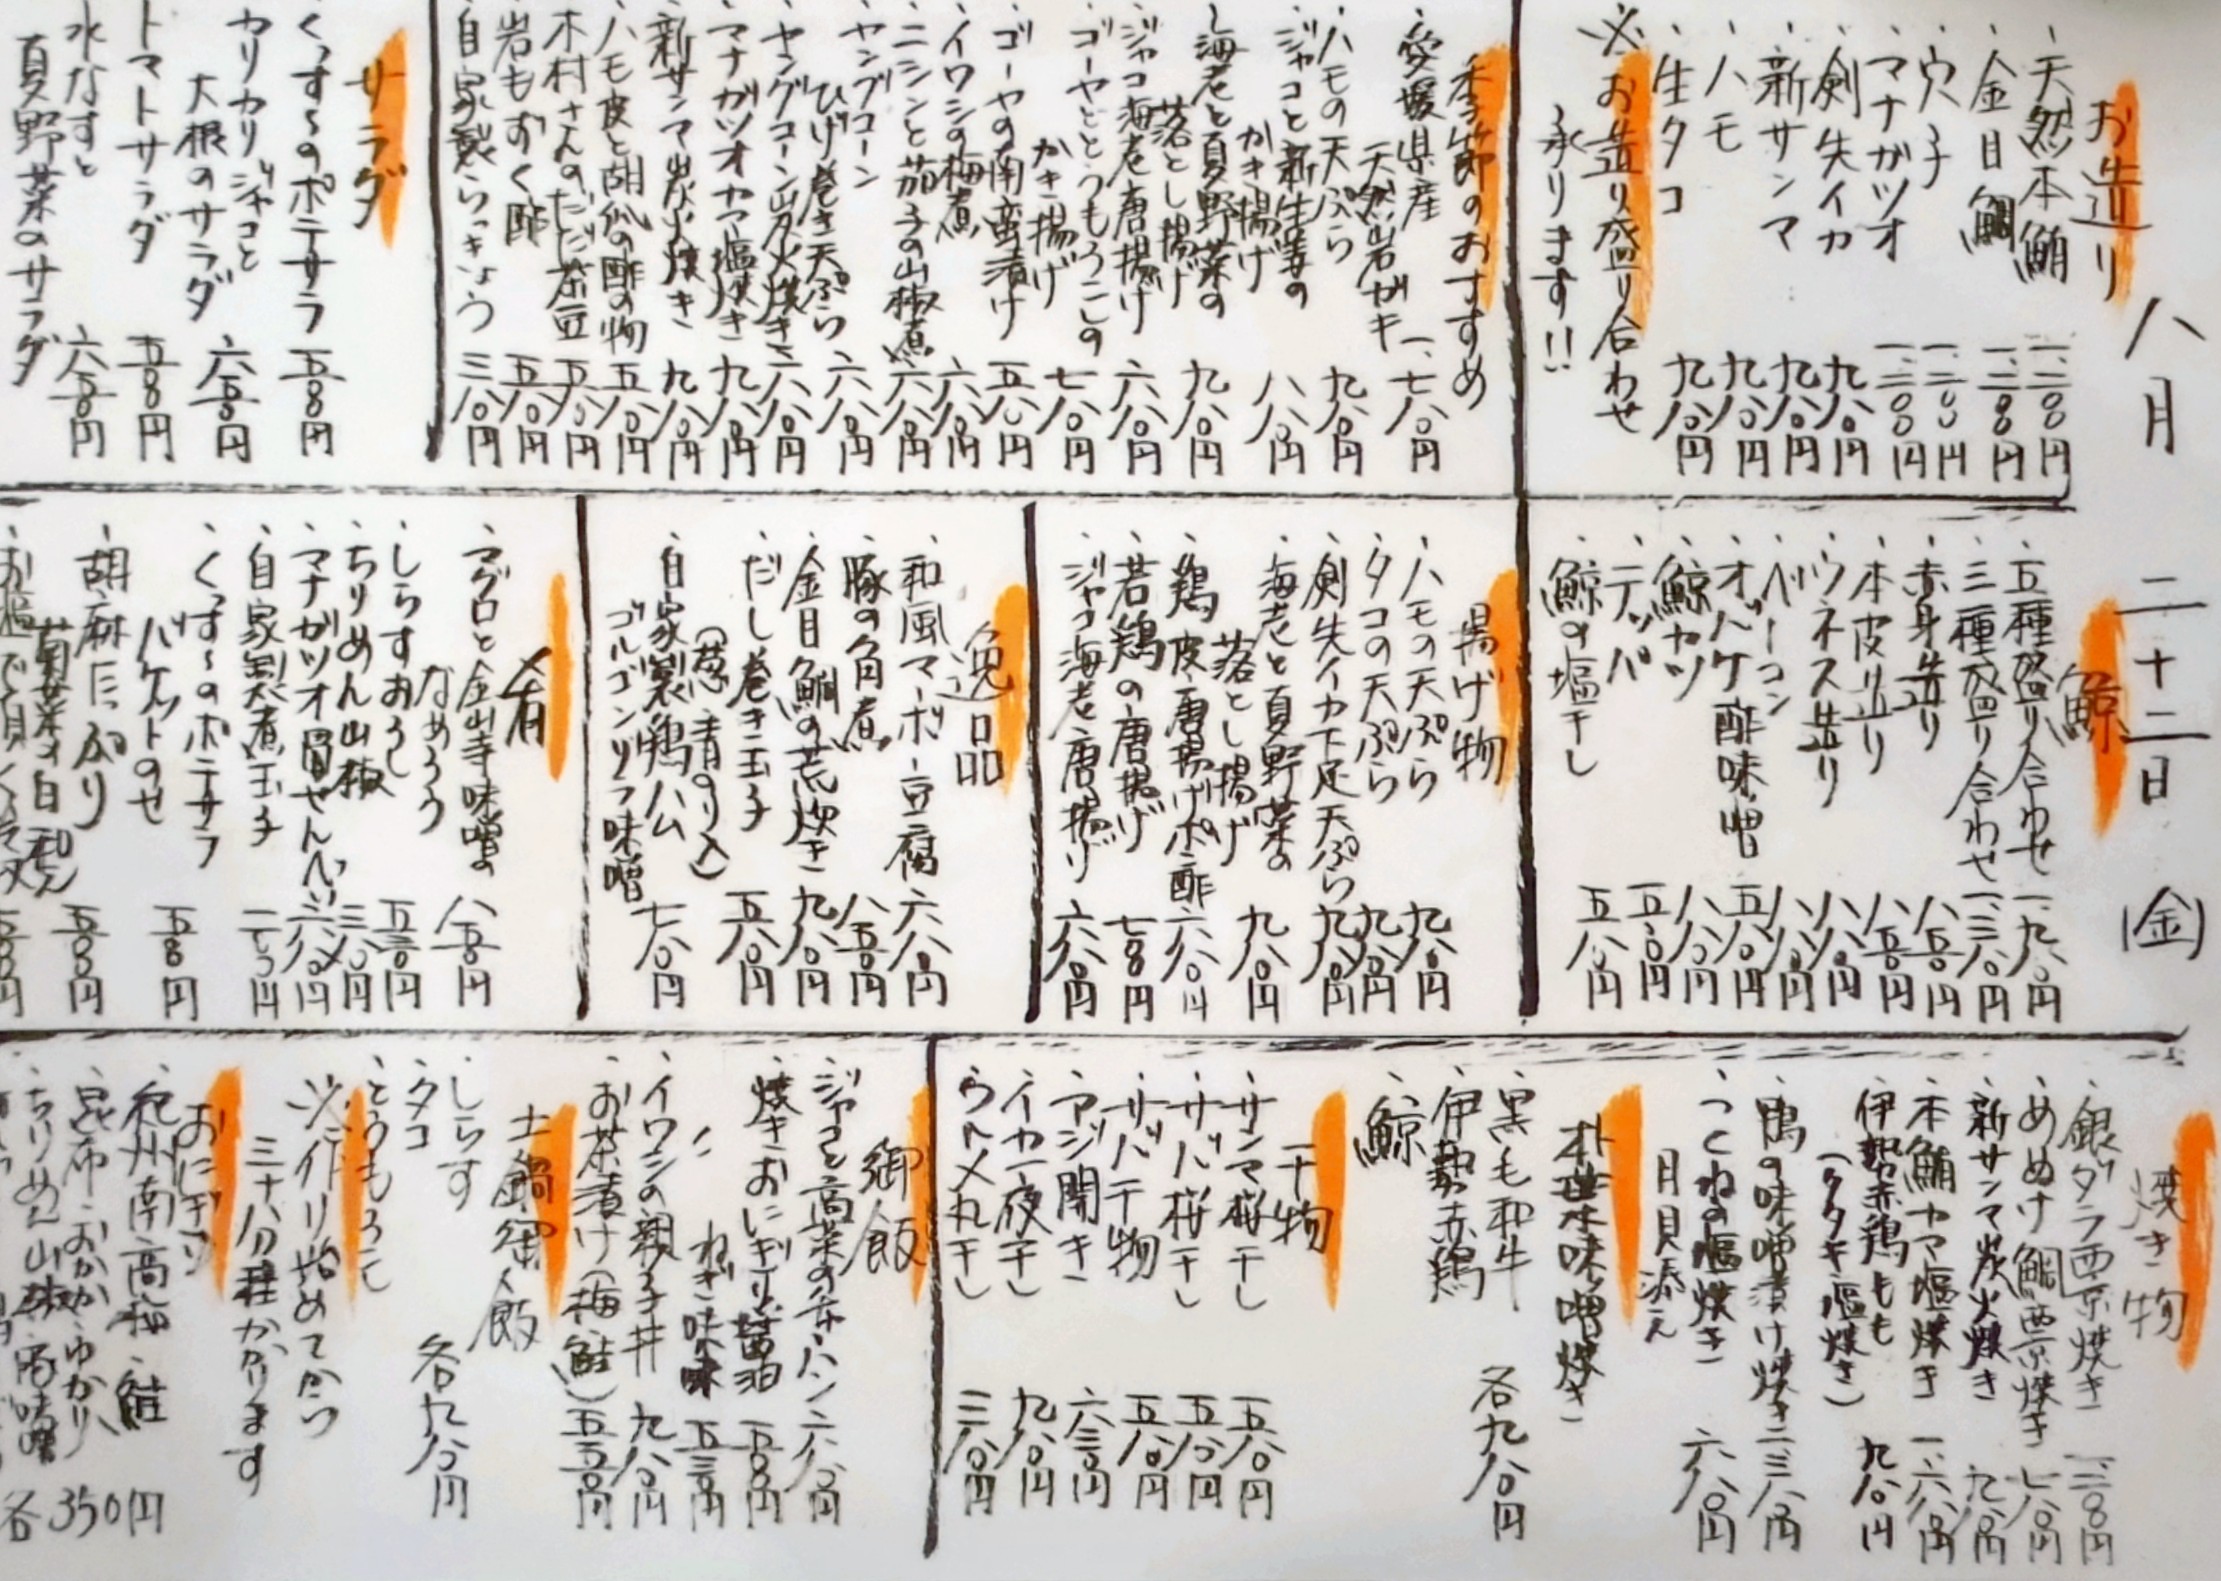 八月 二十二日 (金)
お造り
、天然本鮪 一、二〇〇円
、金目鯛 一、二〇〇円
、穴子 一、二〇〇円
、マナガツオ 一、二〇〇円
、剣先イカ 九八〇円
、新サンマ 九八〇円
、ハモ 九八〇円
、生タコ 九八〇円
※お造り盛り合わせ
承ります!!
季節のおすすめ
、愛媛県産
天然岩ガキ 一、七八〇円
、ハモの天ぷら 九八〇円
、ジャコと新生姜の
かき揚げ 八八〇円
、海老と夏野菜の
落とし揚げ 九八〇円
、ジャコ海老唐揚げ 六八〇円
、ゴーヤととうもろこしの
かき揚げ 七八〇円
、ゴーヤの南蛮漬け 五八〇円
、イワシの梅煮 六八〇円
、ニシンと茄子の山椒煮 六八〇円
、ヤングコーン
ひげ巻き天ぷら 六八〇円
、ヤングコーン炭火焼き 六八〇円
、マナガツオカマ塩焼き 九八〇円
、新サンマ炭火焼き 九八〇円
、ハモ皮と胡瓜の酢の物 五八〇円
、木村さんのだだ茶豆 五八〇円
、岩もずく酢 五八〇円
、自家製らっきょう 三八〇円
サラダ
、くっすーのポテサラ 五五〇円
、カリカリジャコと
大根のサラダ 六五〇円
、トマトサラダ 五五〇円
、水なすと
夏野菜のサラダ 六五〇円
鯨
、五種盛り合わせ 一、九八〇円
、三種盛り合わせ 一、三八〇円
、赤身造り 八五〇円
、本皮造り 八五〇円
、ウネス造り 八八〇円
、ベーコン 八八〇円
、オバケ酢味噌 五八〇円
、鯨カツ 八八〇円
、テッパ 五八〇円
、鯨の塩干し 五八〇円
揚げ物
、ハモの天ぷら 九八〇円
、タコの天ぷら 九八〇円
、剣先イカ下足天ぷら 九八〇円
、海老と夏野菜の
落とし揚げ 九八〇円
、鶏皮唐揚げポン酢 六八〇円
、若鶏の唐揚げ 七八〇円
、ジャコ海老唐揚げ 六八〇円
逸品
、和風マーボー豆腐 六八〇円
、豚の角煮 八五〇円
、金目鯛の荒炊き 九八〇円
、だし巻き玉子
(葱、青のり入) 五八〇円
、自家製鶏ハム
ゴルゴンゾーラ味噌 七八〇円
肴
、マグロと金山寺味噌の
なめろう 八五〇円
、しらすおろし 五五〇円
、ちりめん山椒 三八〇円
、マナガツオ骨せんべい 三八〇円
、自家製煮玉子
、くっすーのポテサラ
バケットのせ 五五〇円
、胡麻たっぷり
菊菜の白和え 五五〇円
焼き物
、銀ダラ西京焼き
、めぬけ鯛西京焼き
、新サンマ炭火焼き 九八〇円
、本鮪カマ塩焼き 一、六八〇円
、伊賀赤鶏もも
(タタキ・塩焼き) 九八〇円
、鴨の味噌漬け焼き 一、三八〇円
、つくねの塩焼き
月見添え 六八〇円
朴葉味噌焼き
、黒毛和牛
、伊賀赤鶏
、鯨
各九八〇円
干物
、サンマ桜干し 五八〇円
、サバ桜干し 五八〇円
、サバ干物 五八〇円
、アジ開き 六三〇円
、イカ一夜干し 九八〇円
、ウルメ丸干し 三八〇円
御飯
、ジャコと高菜の炒ハン 六八〇円
、焼きおにぎり 醤油 五〇〇円
〃 ねぎ味噌 五五〇円
、イワシの親子丼 九八〇円
、お茶漬け(梅・鮭) 五五〇円
土鍋釜飯
、しらす
、タコ
、とうもろこし
各九八〇円
※作り始めてから
三十分程かかります
おにぎり
、紀州南高梅・鮭
、昆布・おかか・ゆかり
、ちりめん山椒・豚味噌
各350円